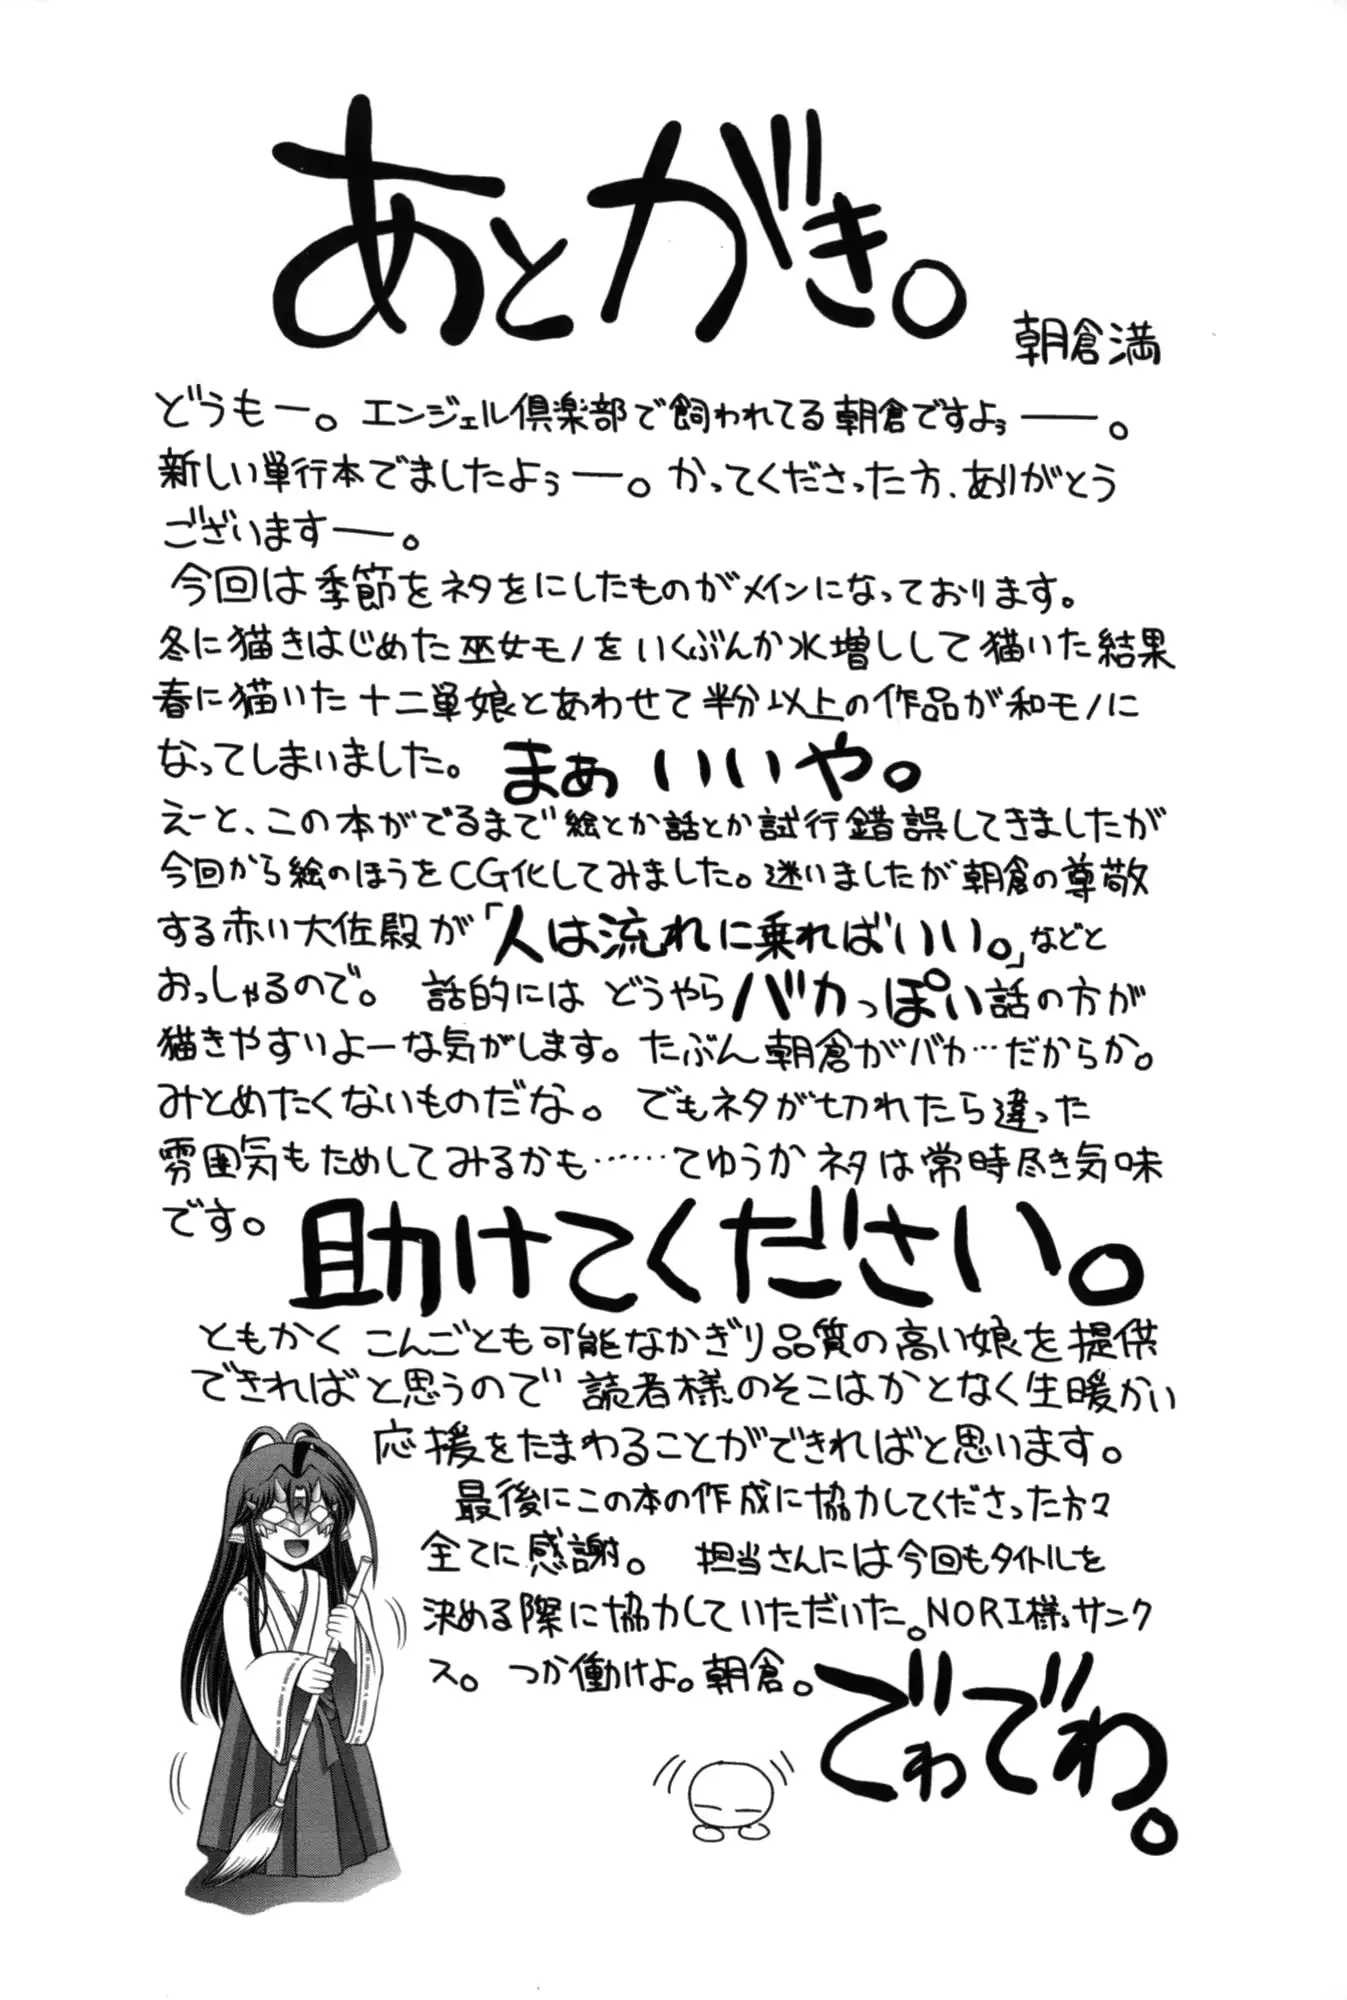 あとがき。
朝倉満
どうもー。エンジェル倶楽部で飼われてる朝倉ですよぅ――。
新しい単行本でましたよぅ―。かってくださった方、ありがとう
ございます――。
今回は季節をネタをにしたものがメインになっております。
冬に猫きはじめた巫女モノをいくぶんか水増しして猫いた結果
春に猫いた十二単娘とあわせて半分以上の作品が和モノに
なってしまいました。まぁいいや。
えーと、この本がでるまで絵とか話とか試行錯誤してきましたが
今回から絵のほうをCG化してみました。迷いましたが朝倉の尊敬
する赤い大佐殿が「人は流れに乗ればいい。」などと
おっしゃるので。話的にはどうやらバカっぽい話の方が
猫きやすいよーな気がします。たぶん朝倉がバカ…だからか。
みとめたくないものだな。でもネタが切れたら違った
雰囲気もためしてみるかも……てゆうかネタは常時尽き気味
です。助けてください。
ともかくこんごとも可能なかぎり品質の高い娘を提供
できればと思うので読者様のそこはかとなく生暖かい
応援をたまわることができればと思います。
最後にこの本の作成に協力してくださった方々
全てに感謝。担当さんには今回もタイトルを
決める際に協力していただいた。NORI様サンク
ス。つか働けよ。朝倉。でわでわ。